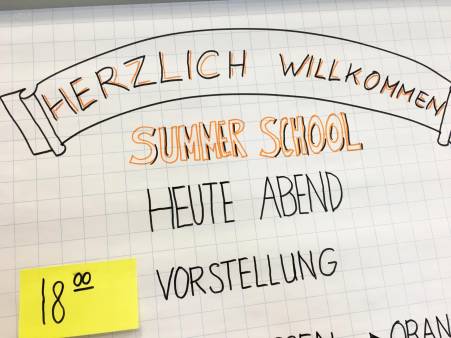 HERZLICH WILLKOMMEN
SUMMER SCHOOL
HEUTE ABEND
18⁰⁰ VORSTELLUNG